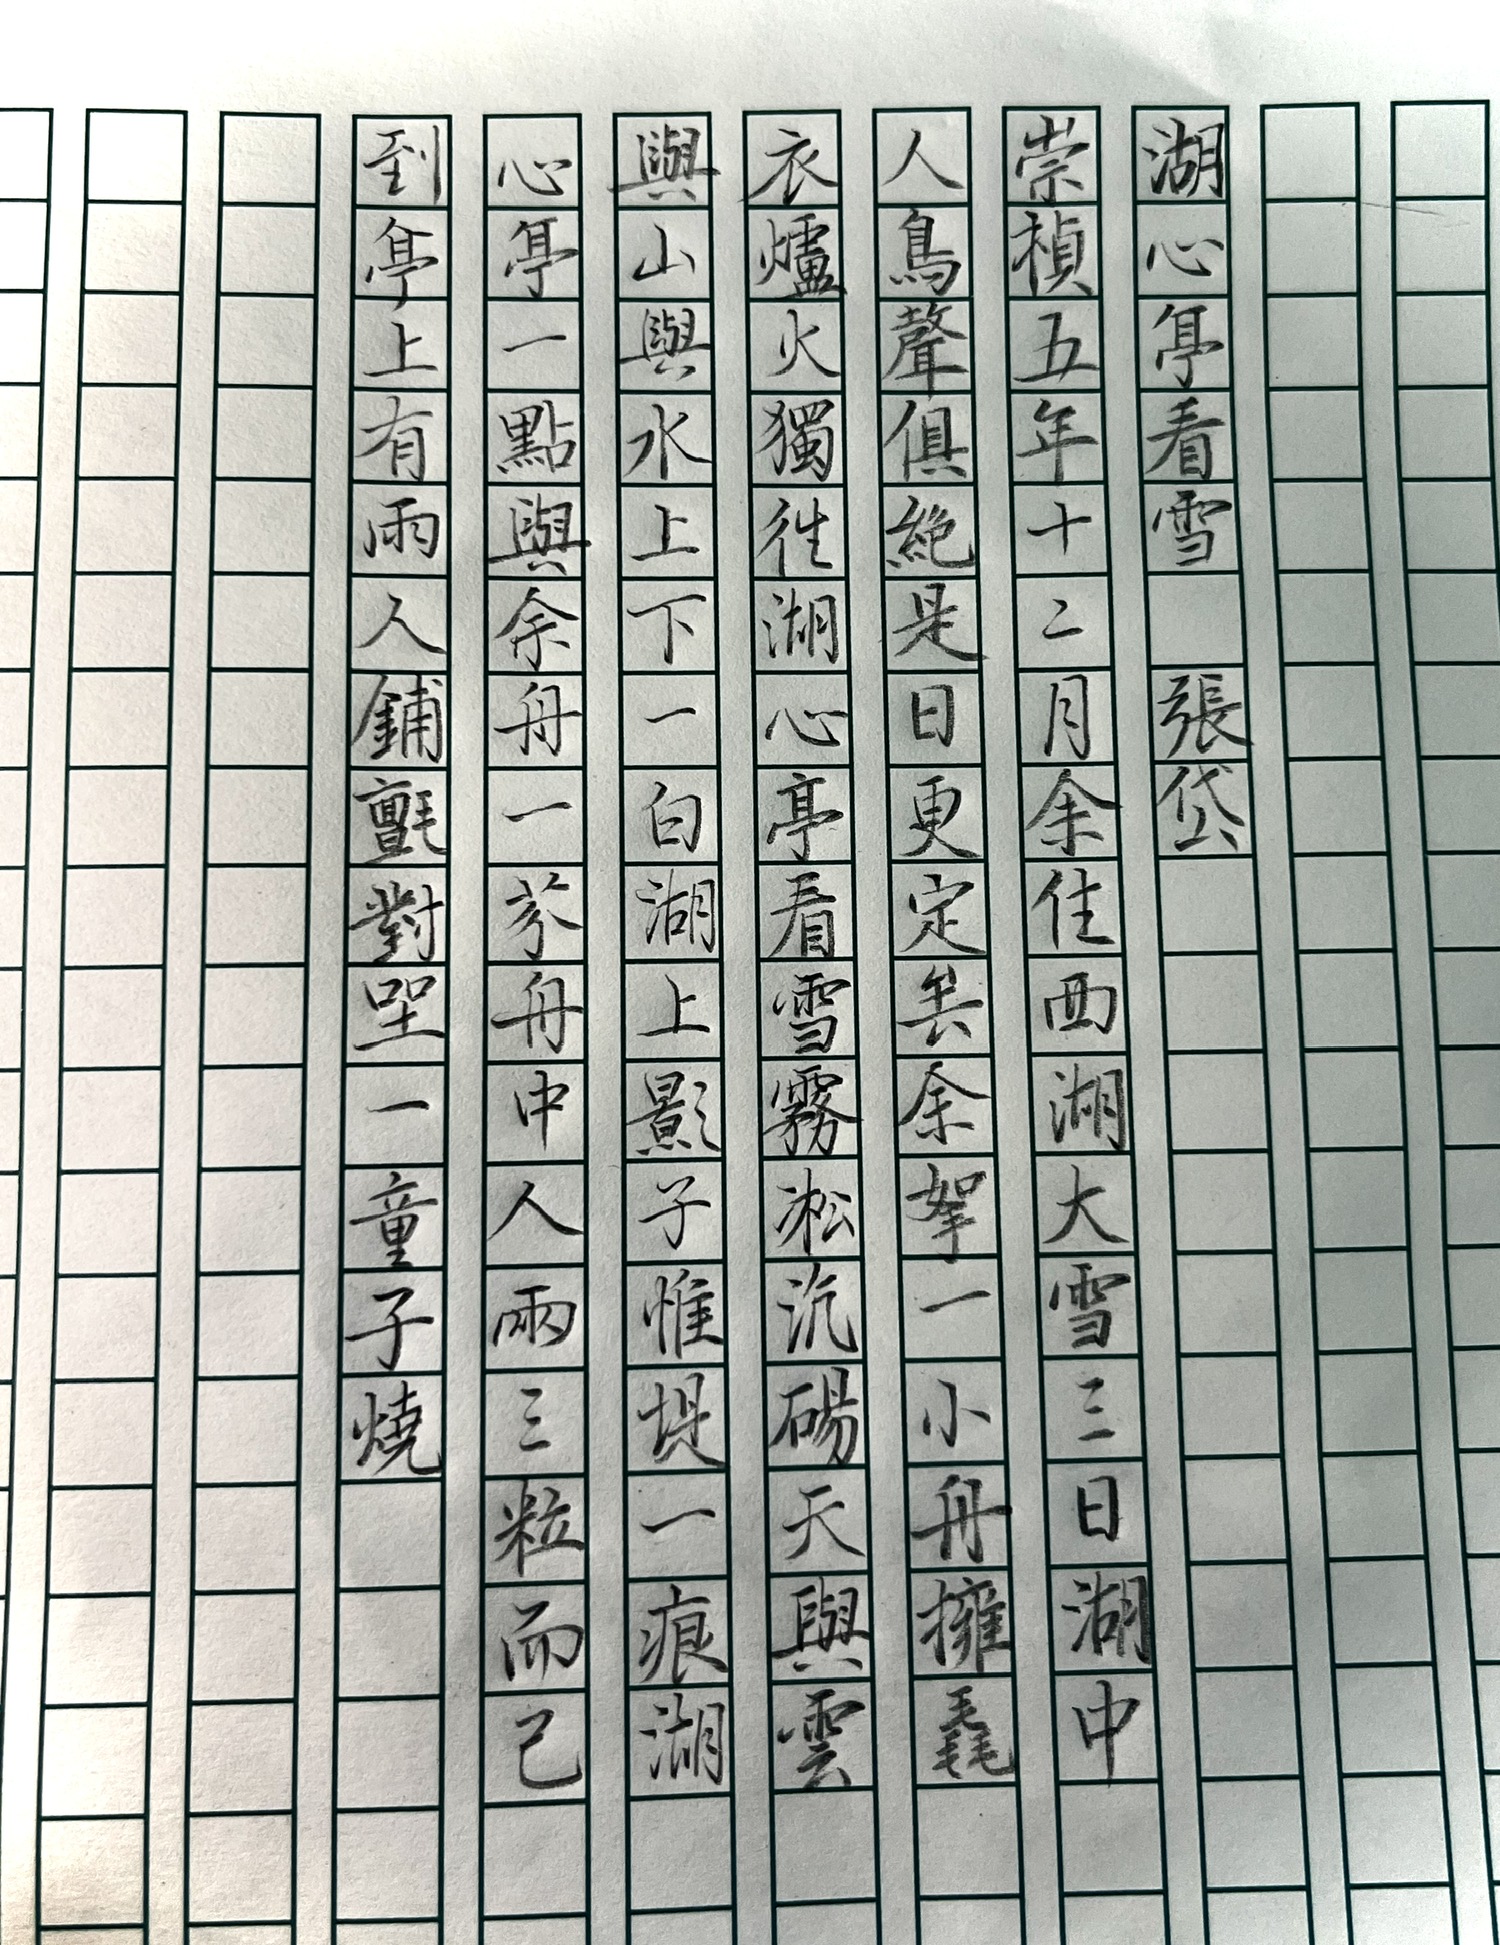 湖心亭看雪 張岱
崇禎五年十二月余住西湖大雪三日湖中
人鳥聲俱絕是日更定矣余拏一小舟擁毳
衣爐火獨往湖心亭看雪霧凇沆碭天與雲
與山與水上下一白湖上影子惟堤一痕湖
心亭一點與余舟一芥舟中人兩三粒而已
到亭上有兩人鋪氈對坐一童子燒